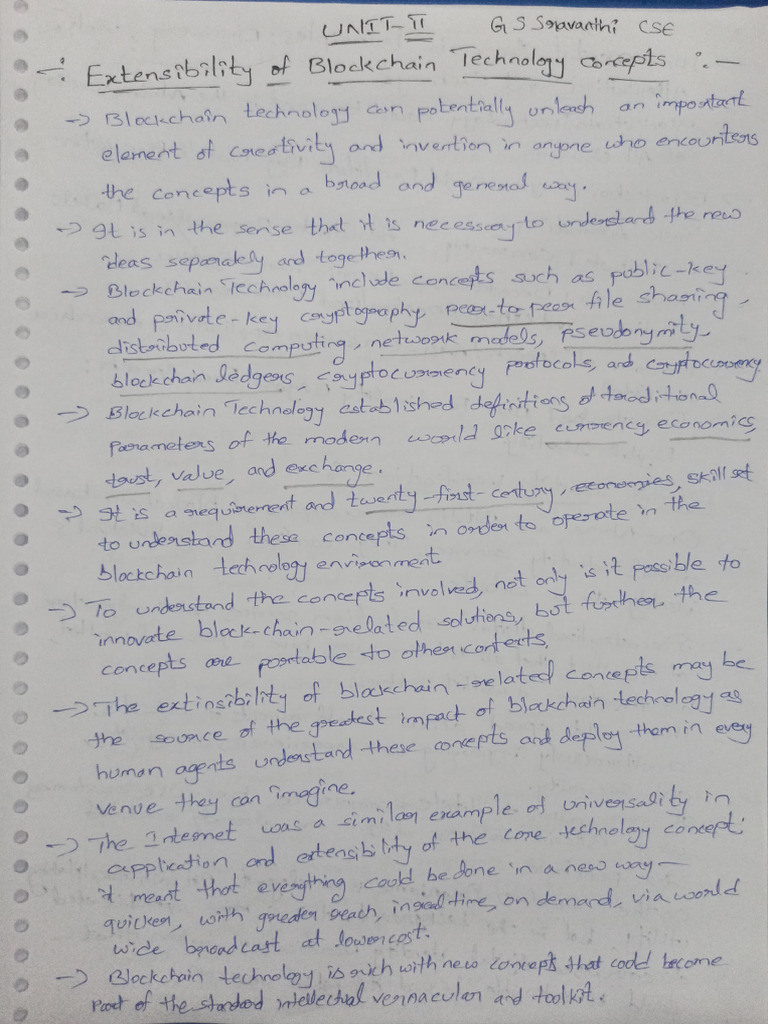 UNIT-II G S Sravanthi CSE
÷ Extensibility of Blockchain Technology concepts :-
→ Blockchain technology can potentially unleash an important
element of creativity and invention in anyone who encounters
the concepts in a broad and general way.
→ It is in the sense that it is necessary to understand the new
ideas separately and together.
→ Blockchain Technology include concepts such as public-key
and private-key cryptography, peer-to peer file sharing,
distributed computing, network models, pseudonymity,
blockchain ledgers, cryptocurrency protocols, and cryptocurrency
→ Blockchain Technology established definitions of traditional
parameters of the modern world like currency, economics,
trust, value, and exchange.
→ It is a requirement and twenty-first-century, economies, skill set
to understand these concepts in order to operate in the
blockchain technology environment
→ To understand the concepts involved, not only is it possible to
innovate block-chain-related solutions, but further, the
concepts are portable to other contexts,
→ The extinsibility of blockchain-related concepts may be
the source of the greatest impact of blockchain technology as
human agents understand these concepts and deploy them in every
venue they can imagine.
→ The Internet was a similar example of universality in
application and extensibility of the core technology concept;
it meant that everything could be done in a new way—
quicker, with greater reach, in real time, on demand, via world
wide broadcast at lower cost.
→ Blockchain technology is rich with new concepts that could become
part of the standard intellectual vernacular and toolkit.